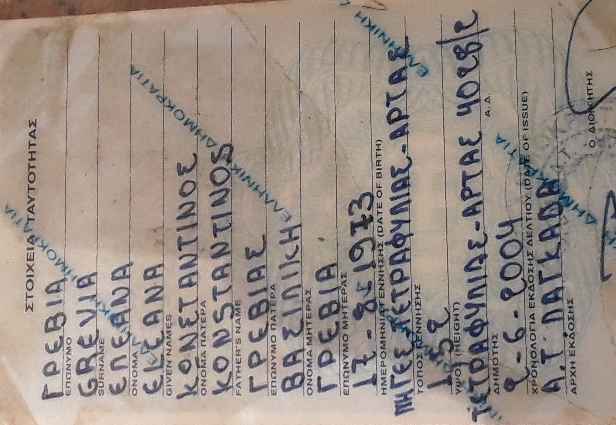 ΣΤΟΙΧΕΙΑ ΤΑΥΤΟΤΗΤΑΣ
ΓΡΕΒΙΑ
ΕΠΩΝΥΜΟ
GREVIA
SURNAME
ΕΛΕΑΝΑ
ΟΝΟΜΑ
ELEANA
GIVEN NAMES
ΚΩΝΣΤΑΝΤΙΝΟΣ
ΟΝΟΜΑ ΠΑΤΕΡΑ
KONSTANTINOS
FATHER'S NAME
ΓΡΕΒΙΑΣ
ΕΠΩΝΥΜΟ ΠΑΤΕΡΑ
ΒΑΣΙΛΙΚΗ
ΟΝΟΜΑ ΜΗΤΕΡΑΣ
ΓΡΕΒΙΑ
ΕΠΩΝΥΜΟ ΜΗΤΕΡΑΣ
17-8-1973
ΗΜΕΡΟΜΗΝΙΑ ΓΕΝΝΗΣΗΣ (DATE OF BIRTH)
ΠΗΓΕΣ ΤΕΤΡΑΦΥΛΙΑΣ-ΑΡΤΑΣ
ΤΟΠΟΣ ΓΕΝΝΗΣΗΣ
1,52
ΥΨΟΣ (HEIGHT)
ΤΕΤΡΑΦΥΛΙΑΣ-ΑΡΤΑΣ 4028/2
ΔΗΜΟΤΗΣ Α.Δ.
2-6-2004
ΧΡΟΝΟΛΟΓΙΑ ΕΚΔΟΣΗΣ ΔΕΛΤΙΟΥ (DATE OF ISSUE)
Α.Τ. ΛΑΓΚΑΔΑ
ΑΡΧΗ ΕΚΔΟΣΗΣ
Ο ΔΙΟΙΚΗΤΗΣ
ΕΛΛΗΝΙΚΗ ΔΗΜΟΚΡΑΤΙΑ